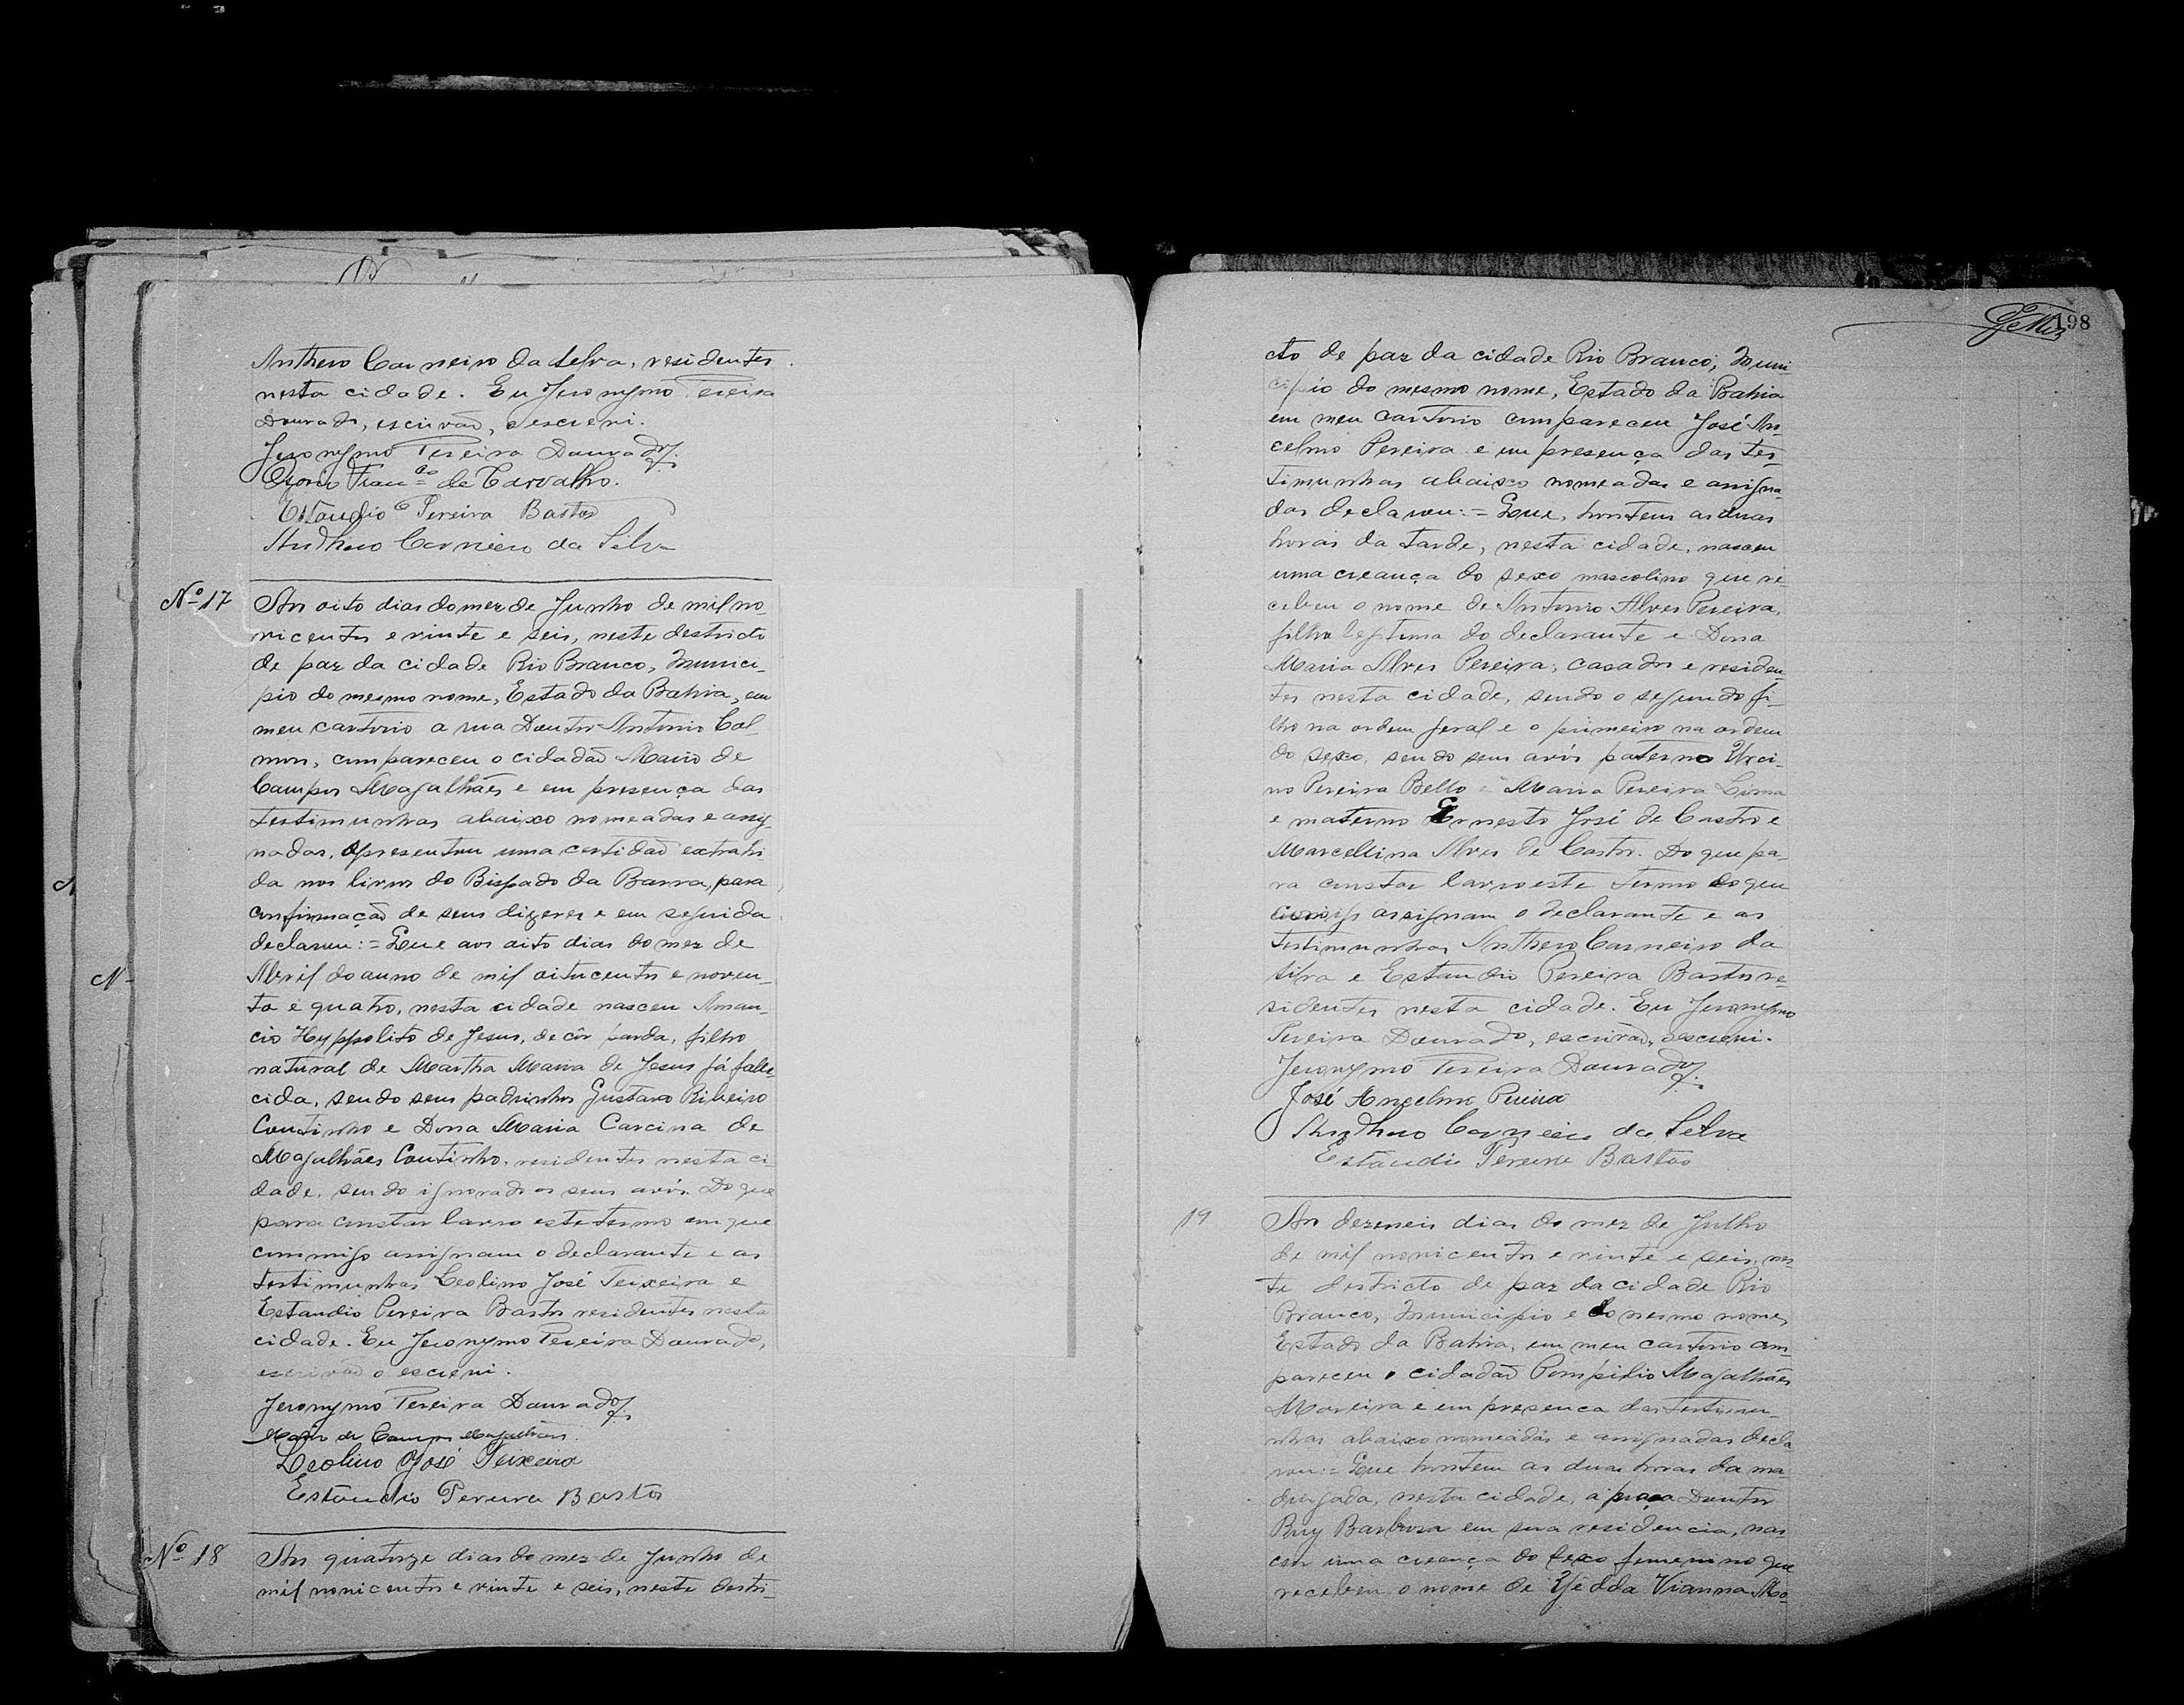 Anthero Carneiro da Selva, residentes
nesta cidade. Eu Jeronymo Pereira
Dourado, escrivão, o escrevi.
Jeronymo Pereira Dourado
Franco de Carvalho.
Estaudio Pereira Bastos
Anthero Carneiro da Silva
Nº 17
Aos oito dias do mez de Junho de mil no-
vicentos e vinte e seis, neste destricto
de paz da cidade Rio Branco, Munici-
pio do mesmo nome, Estado da Bahia, em
meu cartorio a rua Doutor Antonio Cal-
mon, compareceu o cidadão Mario de
Campos Magalhães e em presença das
testimunhas abaixo nomeadas e assig-
nadas, apresentou uma certidão extrahi
da nos livros do Bispado da Barra, para
confirmação de seus dizeres e em seguida
declarou: = Que aos oito dias do mez de
Abril do anno de mil oitucentos e noven-
ta e quatro, nesta cidade nasceu Aman-
cio Hyppolito de Jesus, de côr parda, filho
natural de Martha Maria de Jesus já falle-
cida, sendo seus padrinhos Gustavo Ribeiro
Coutinho e Dona Maria Carcina de
Magalhães Coutinho, residentes nesta ci-
dade, sendo ignorados seus avós. Do que
para constar lavro este termo em que
commigo assignam o declarante e as
testimunhas Leolino José Teixeira e
Estaudio Pereira Bastos residentes nesta
cidade. Eu Jeronymo Pereira Dourado,
escrivão o escrevi.
Jeronymo Pereira Dourado
Mario de Campos Magalhães.
Leolino José Teixeira
Estaudio Pereira Bastos
Nº 18
Aos quatorze dias do mez de Junho de
mil novicentos e vinte e seis, neste destri-
198
cto de paz da cidade Rio Branco, Muni
cipio do mesmo nome, Estado da Bahia
em meu cartorio compareceu José An-
celmo Pereira e em presença das tes-
timunhas abaixo nomeadas e assigna-
das declarou: = Que, hontem as duas
horas da tarde, nesta cidade, nasceu
uma creança do sexo mascolino que re-
cebeu o nome de Antonio Alves Pereira,
filho legitima do declarante e Dona
Maria Alves Pereira, casados e residen-
tes nesta cidade, sendo o segundo fi-
lho na ordem geral e o primeiro na ordem
do sexo, sendo seus avós paterno Urci-
no Pereira Bello e Maria Pereira Lima
e materno Ernesto José de Castro e
Marcellina Alves de Castro. Do que pa-
ra constar lavro este termo do que
comigo assignam o declarante e as
testimunhas Anthero Carneiro da
Silva e Estaudio Pereira Bastos re-
sidentes nesta cidade. Eu Jeronymo
Pereira Dourado, escrivão, o escrevi.
Jeronymo Pereira Dourado
José Ancelmo Pereira
Anthero Carneiro da Selva
Estaudio Pereira Bastos
19
Aos dezeseis dias do mez de Julho
de mil novicentos e vinte e seis, nes-
te destricto de paz da cidade Rio
Branco, Municipio e do mesmo nome,
Estado da Bahia, em meu cartorio com-
pareceu o cidadão Pompilio Magalhães
Moreira e em presenca das testimu-
nhas abaixo nomeadas e assignadas decla
rou: = Que hontem as duas horas da ma-
drugada, nesta cidade, a praça Doutor
Ruy Barbosa em sua residencia, nas
ceu uma creança do sexo femenino que
recebeu o nome de Yêdda Vianna Mo-